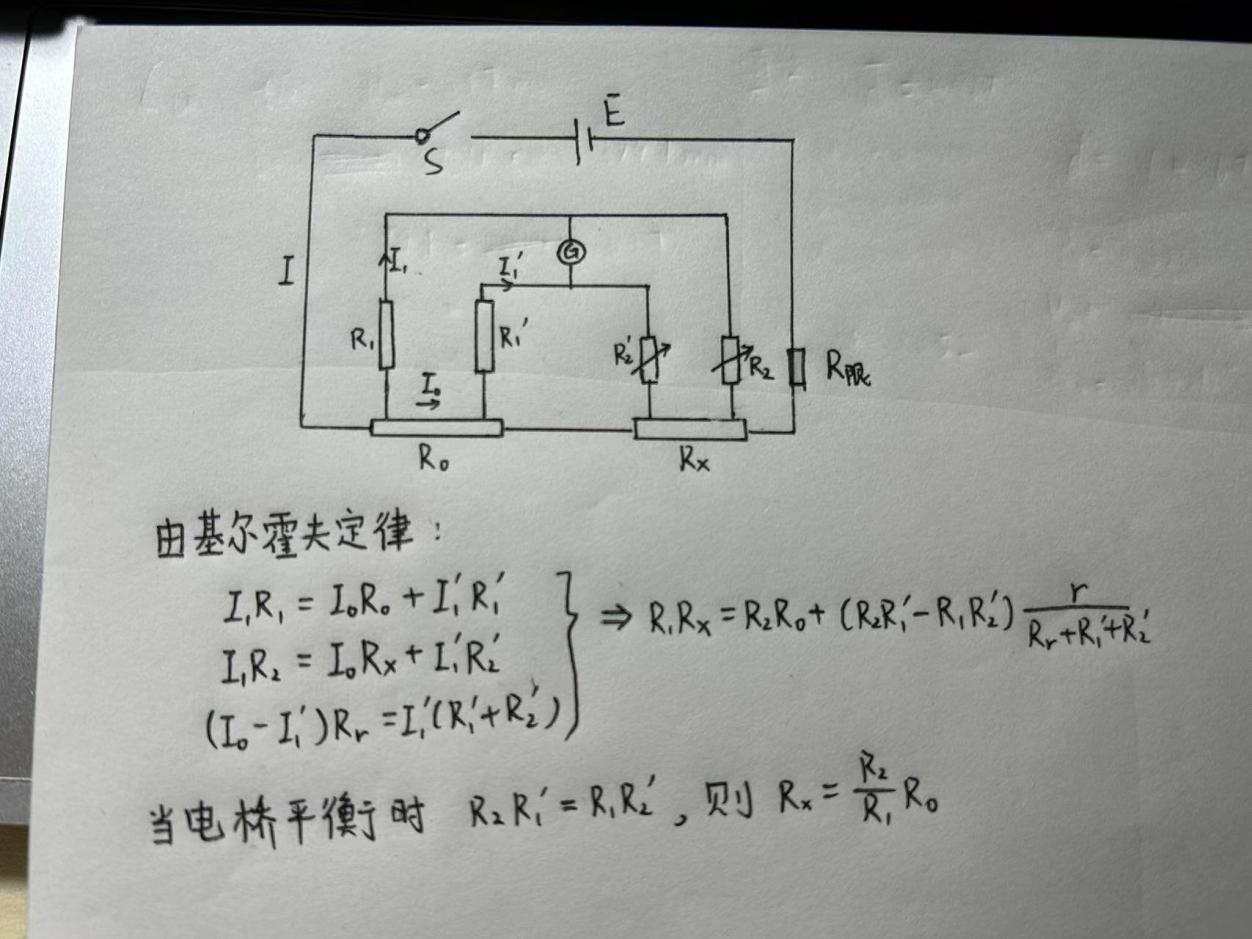 S
E
I
I₁
I₁′
G
R₁
R₁′
R₂′
R₂
R限
I₀
R₀
Rx
由基尔霍夫定律:
I₁R₁ = I₀R₀ + I₁′R₁′
I₁R₂ = I₀Rx + I₁′R₂′
(I₀ - I₁′)Rr = I₁′(R₁′+R₂′)
⇒ R₁Rx = R₂R₀ + (R₂R₁′ - R₁R₂′) r/(Rr+R₁′+R₂′)
当电桥平衡时 R₂R₁′ = R₁R₂′, 则 Rx = R₂/R₁ R₀